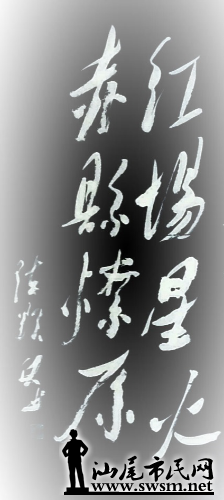 红場星火
赤縣燎原
汕尾市民网
www.swsm.net